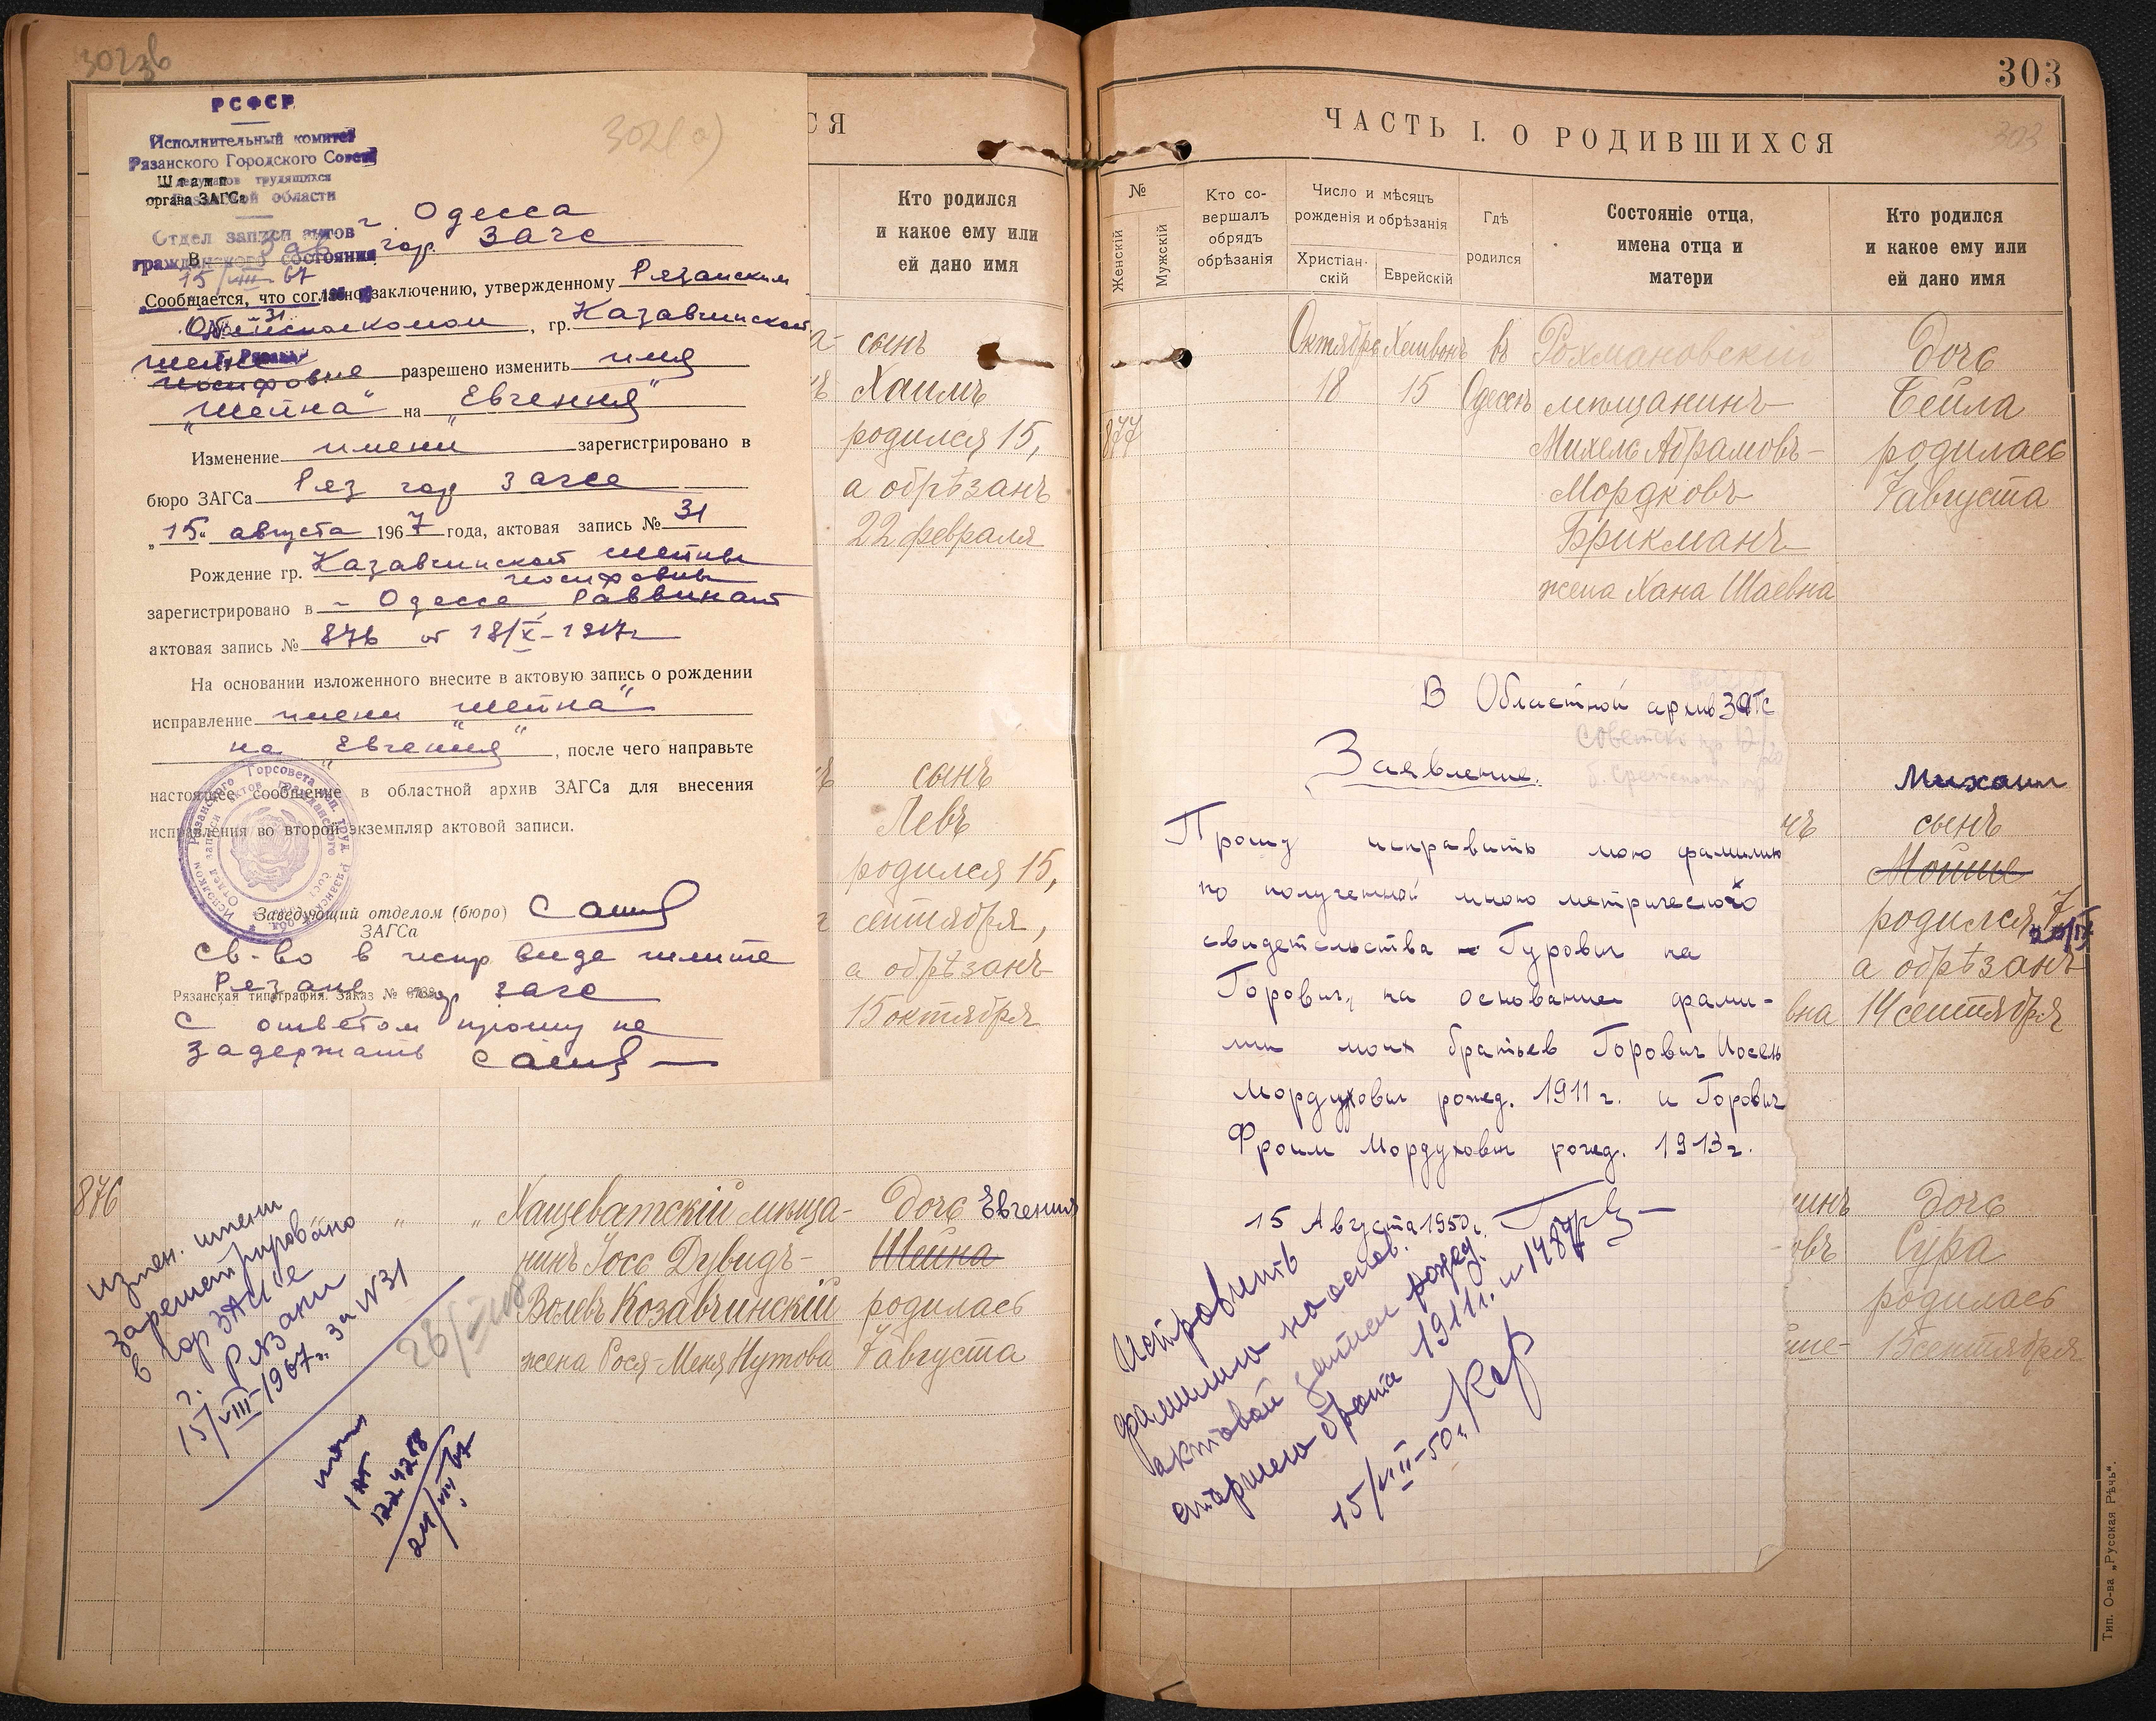 302
РСФСР
Исполнительный комитет
Рязанского Городского Совета
депутатов трудящихся
Рязанской области
Штамп
органа ЗАГСа
302(а)
Отдел записи актов
гражданского состояния
г. Одесса
В гор. Загс
15/VIII 67
№ 31
г. Рязань
Сообщается, что согласно заключению, утвержденному Рязанским
Облисполкомом, гр. Казавчинской
Шейне
Иосифовне разрешено изменить имя
„Шейна" на „Евгения"
Изменение имени зарегистрировано в
бюро ЗАГСа Ряз гор загсе
„15" августа 1967 года, актовая запись № 31
Рождение гр. Казавчинской Шейны
Иосифовны
зарегистрировано в г Одессе, Раввинат
актовая запись № 876 от 18/X-1917г
На основании изложенного внесите в актовую запись о рождении
исправление имени „Шейна"
на „Евгения", после чего направьте
настоящее сообщение в областной архив ЗАГСа для внесения
исправления во второй экземпляр актовой записи.
Заведующий отделом (бюро)
ЗАГСа
Св-во в испр виде шлите
Рязань гор загс
Рязанская типография. Заказ №
С ответом прошу не
задержать
СЯ
Кто родился
и какое ему или
ей дано имя
сынъ
Хаимъ
родился 15,
а обрѣзанъ
22 февраля
сынъ
Левъ
родился 15,
сентября,
а обрѣзанъ
15 октября
876
Хащеватскій мѣща-
нинъ Іось Дувидъ-
Волевъ Козавчинскій
жена Рося-Меня Нутова
Дочь Евгения
Шейна
родилась
7 августа
измен. имени
зарегистрировано
в гор ЗАГСе
г. Рязани
15/VIII-1967г. за №31
28/VIII 8
224258
24/VIII 67
303
ЧАСТЬ I. О РОДИВШИХСЯ
303
№
Женскій
Мужскій
Кто со-
вершалъ
обрядъ
обрѣзанія
Число и мѣсяцъ
рожденія и обрѣзанія
Христіан-
скій
Еврейскій
Гдѣ
родился
Состояніе отца,
имена отца и
матери
Кто родился
и какое ему или
ей дано имя
877
Октябрь Хешвонъ въ
18 15 Одессѣ
Рохмановскій
мѣщанинъ
Михель Абрамовъ-
Мордковъ
Брикманъ
жена Хана Шаевна
Дочь
Бейла
родилась
7 августа
В Областной архив ЗАГС
Заявление.
Прошу исправить мою фамилию
по полученной мною метрического
свидетельства Гурович на
Горович, на основание фами-
лии моих братьев Горович Иосель
Мордухович рожд. 1911 г. и Горович
Фроим Мордухович рожд. 1913 г.
15 Августа 1950г.
Исправить
фамилию на основ.
актовой записи рожд.
старшего брата 1911г. № 1487
15/VIII-50г.
Михаил
сынъ
Мойше
родился 7
20/IX
а обрѣзанъ
14 сентября
вна
Дочь
Сура
родилась
15 сентября
Тип. О-ва „Русская Рѣчь".